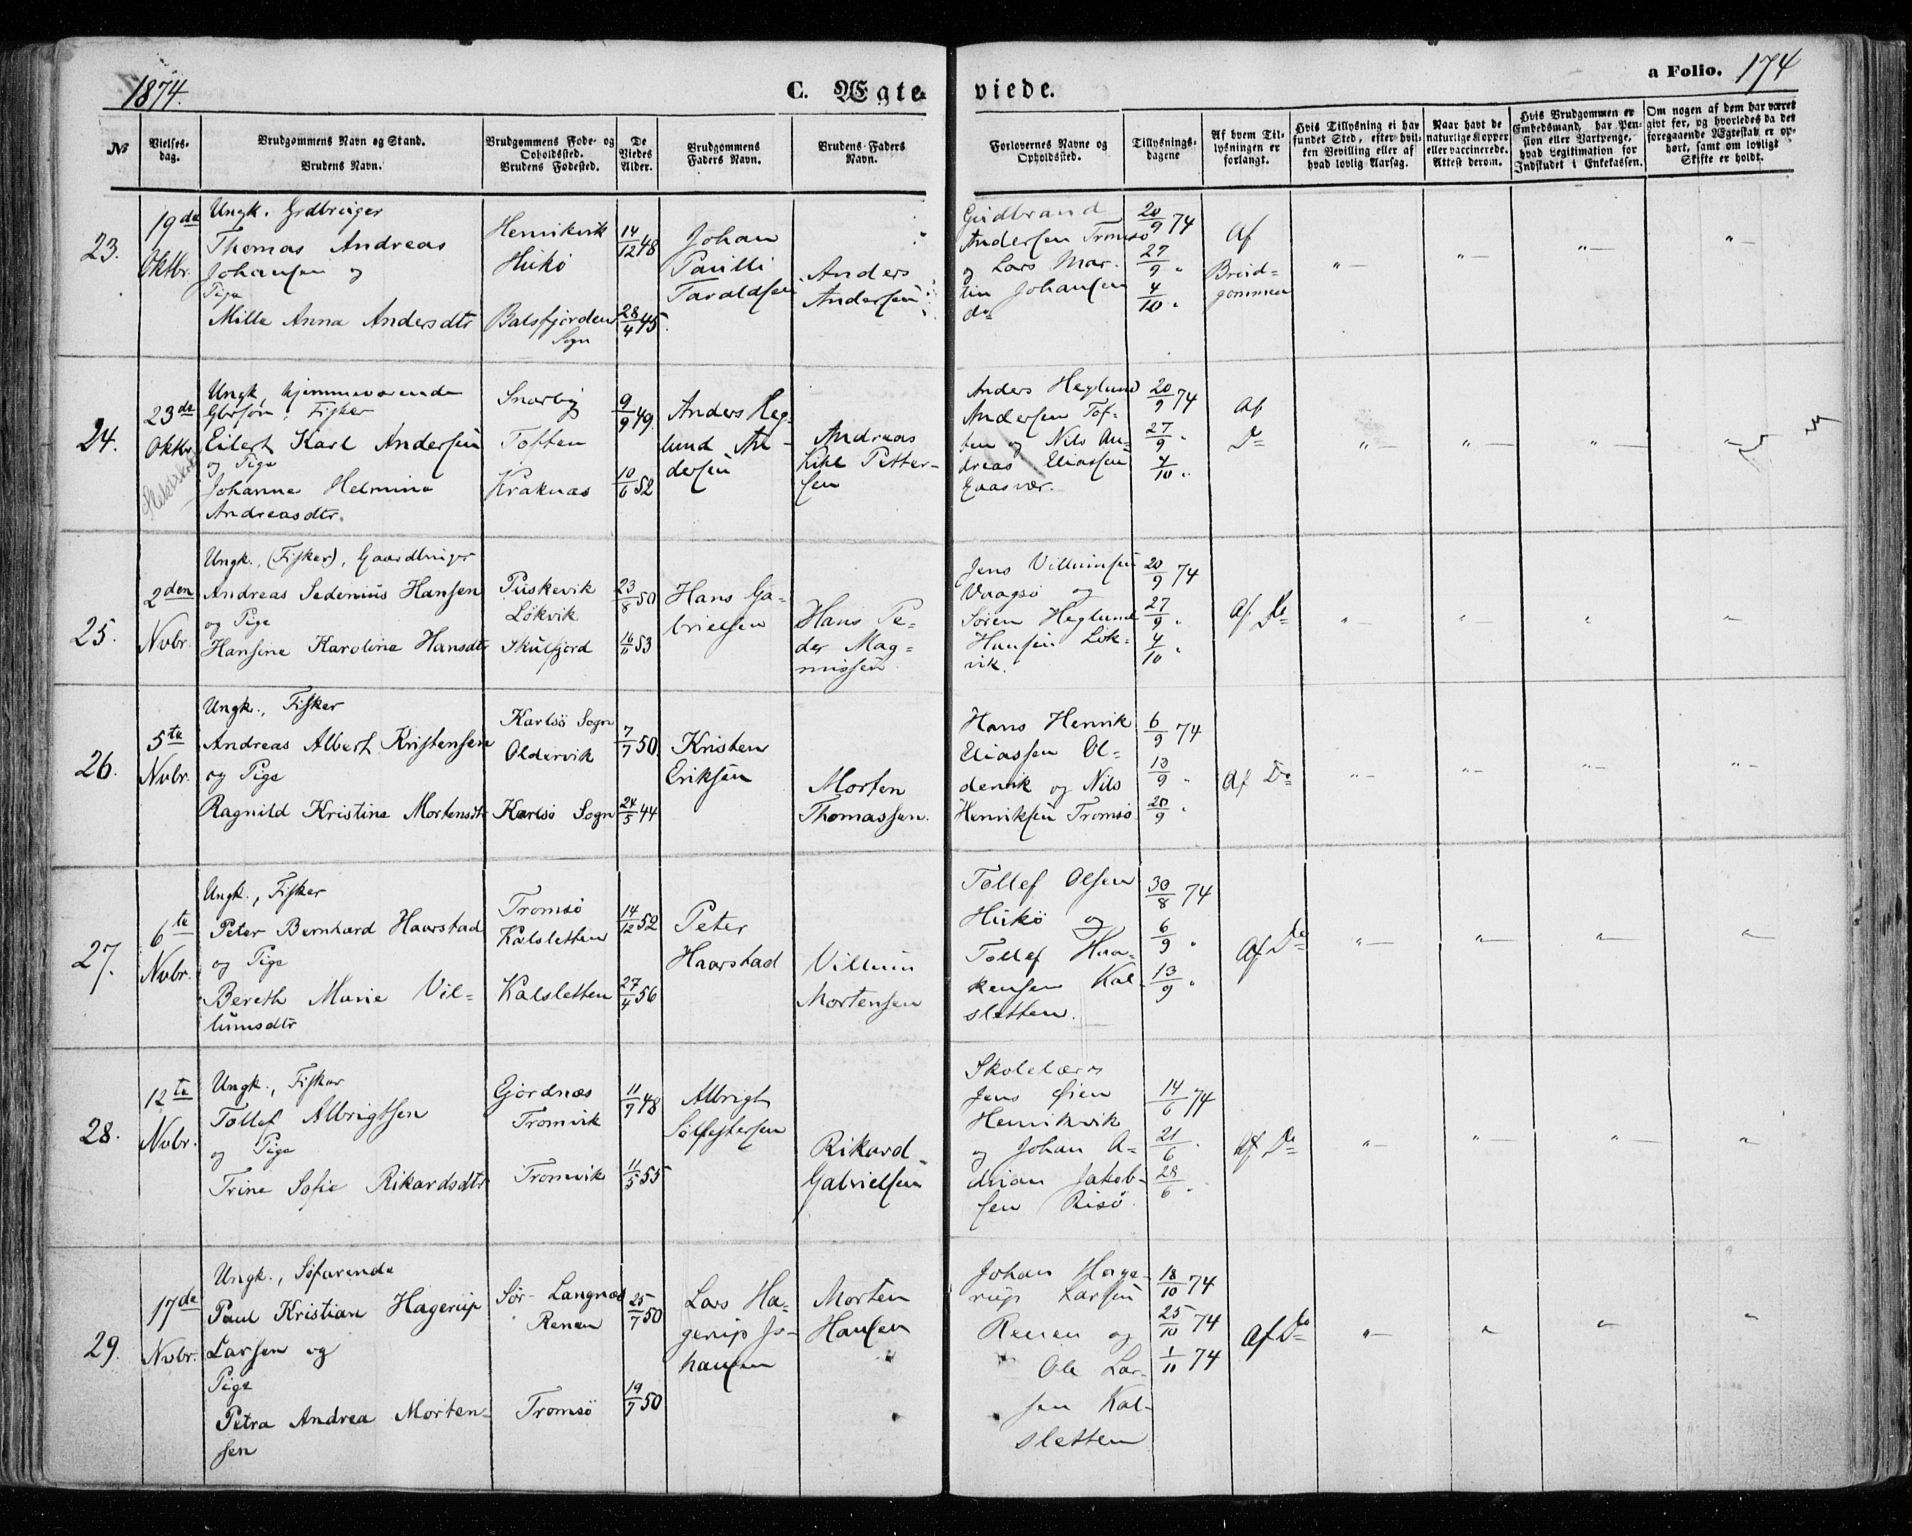 1874.
C. Ægte
viede.
a Folio. 174
No
Vielses-
dag.
Brudgommens Navn og Stand.
Brudens Navn.
Brudgommens Føde- og
Opholdssted.
Brudens Fødested.
De
Viedes
Alder.
Brudgommens
Faders Navn.
Brudens Faders
Navn.
Forlovernes Navne og
Opholdssted.
Tillysnings-
dagene
Af hvem Til-
lysningen er
forlangt.
Hvis Tillysning ei har
fundet Sted, efter hvil-
ken Bevilling eller af
hvad lovlig Aarsag.
Naar havt de
naturlige Kopper
eller vaccinerede.
Attest derom.
Hvis Brudgommen er
Embedsmand, har Pen-
sion eller Vartpenge,
hvad Legitimation for
Indskudet i Enkekassen.
Om nogen af dem har været
gift før, og hvorledes da det
foregaaende Ægteskab er op-
hørt, samt om lovligt
Skifte er holdt.
23.
19de
Oktbr.
Ungk. Grdbruger
Thomas Andreas
Johansen og
Pige
Milla Anna Andersdtr
Henrikvik
Hukø
Balsfjorden
Sogn
14/12 48
28/4 45.
Johan
Paulli
Taraldsen
Anders
Andersen
Gudbrand
Andersen Tromsø
og Lars Mar-
tin Johansen
do
20/9 74
27/9 "
4/10 "
Af
Brud-
gommen
" —
" —
" —
" —
24.
23de
Oktbr.
Ungk, hjemmeværende
Gbrsøn, Fisker
Eilert Karl Andersen
og Pige
Johanna Helmina
Andreasdtr.
Snarby
Toften
Kraknæs
9/9 49.
10/6 52
Anders Heg-
lund An-
dersen
Andreas
Kihl Petter-
sen
Anders Heglund
Andersen Tof-
ten og Nils An-
dreas Eliassen
Gaasvær.
20/9 74
27/9 "
4/10 "
Af
Do
" —
" —
" —
"
25.
2den
Nvbr.
Ungk., (Fisker), Gaardbruger
Andreas Sedenius Hansen
og Pige
Hansine Karoline Hansdtr
Puskevik
Løkvik
Skulfjord
23/8 50
16/11 53
Hans Ga-
brielsen
Hans Pe-
der Mag-
nussen.
Jens Villumsen
Vaagsø og
Søren Heglund
Hansen Løk-
vik.
20/9 74
27/9 "
4/10 "
Af Do
" —
" —
" —
" —
26.
5te
Nvbr.
Ungk., Fisker
Andreas Albert Kristensen
og Pige
Ragnild Kristine Mortensdtr
Karlsø Sogn
Oldervik
Karlsø Sogn
7/7 50
24/5 44
Kristen
Eriksen
Morten
Thomassen.
Hans Henrik
Eliassen Ol-
dervik og Nils
Henriksen Tromsø
6/9 74
13/9 "
20/9 "
Af Do
" —
" —
" —
" —
27.
6te
Nvbr.
Ungk., Fisker
Peter Bernhard Haarstad
og Pige
Bereth Marie Vil-
lumsdtr
Tromsø
Kalsletten
Kalsletten
14/12 52
27/4 56
Peter
Haarstad
Villum
Mortensen
Tollef Olsen
Hukø og
Tollef Haa-
kensen Kal-
sletten.
30/8 74
6/9 "
13/9 "
Af Do
" —
" —
" —
" —
28.
12te
Nvbr.
Ungk., Fisker
Tollef Albrigtsen
og Pige
Trine Sofie Rikardsdtr
Gjørdnæs
Tromvik
Tromvik
11/9 48
11/5 55
Albrigt
Sølfestersen
Rikard
Gabrielsen
Skolelærer
Jens Øien
Henrikvik
og Johan A-
drian Jakob-
sen Risø.
14/6 74
21/6 "
28/6 "
Af Do
" —
" —
" —
"
29.
17de
Nvbr.
Ungk., Søfarende
Paul Kristian Hagerup
Larsen og
Pige
Petra Andrea Morten-
sen
Sør-Langnæs
Renen
Tromsø
25/7 50
19/7 50
Lars Ha-
gerup Jo-
hansen
Morten
Hansen
Johan Hage-
rup Larsen
Renen og
Ole Lar-
sen Kal-
sletten
18/10 74
25/10 74
1/11 74
Af Do
" —
"
"
"